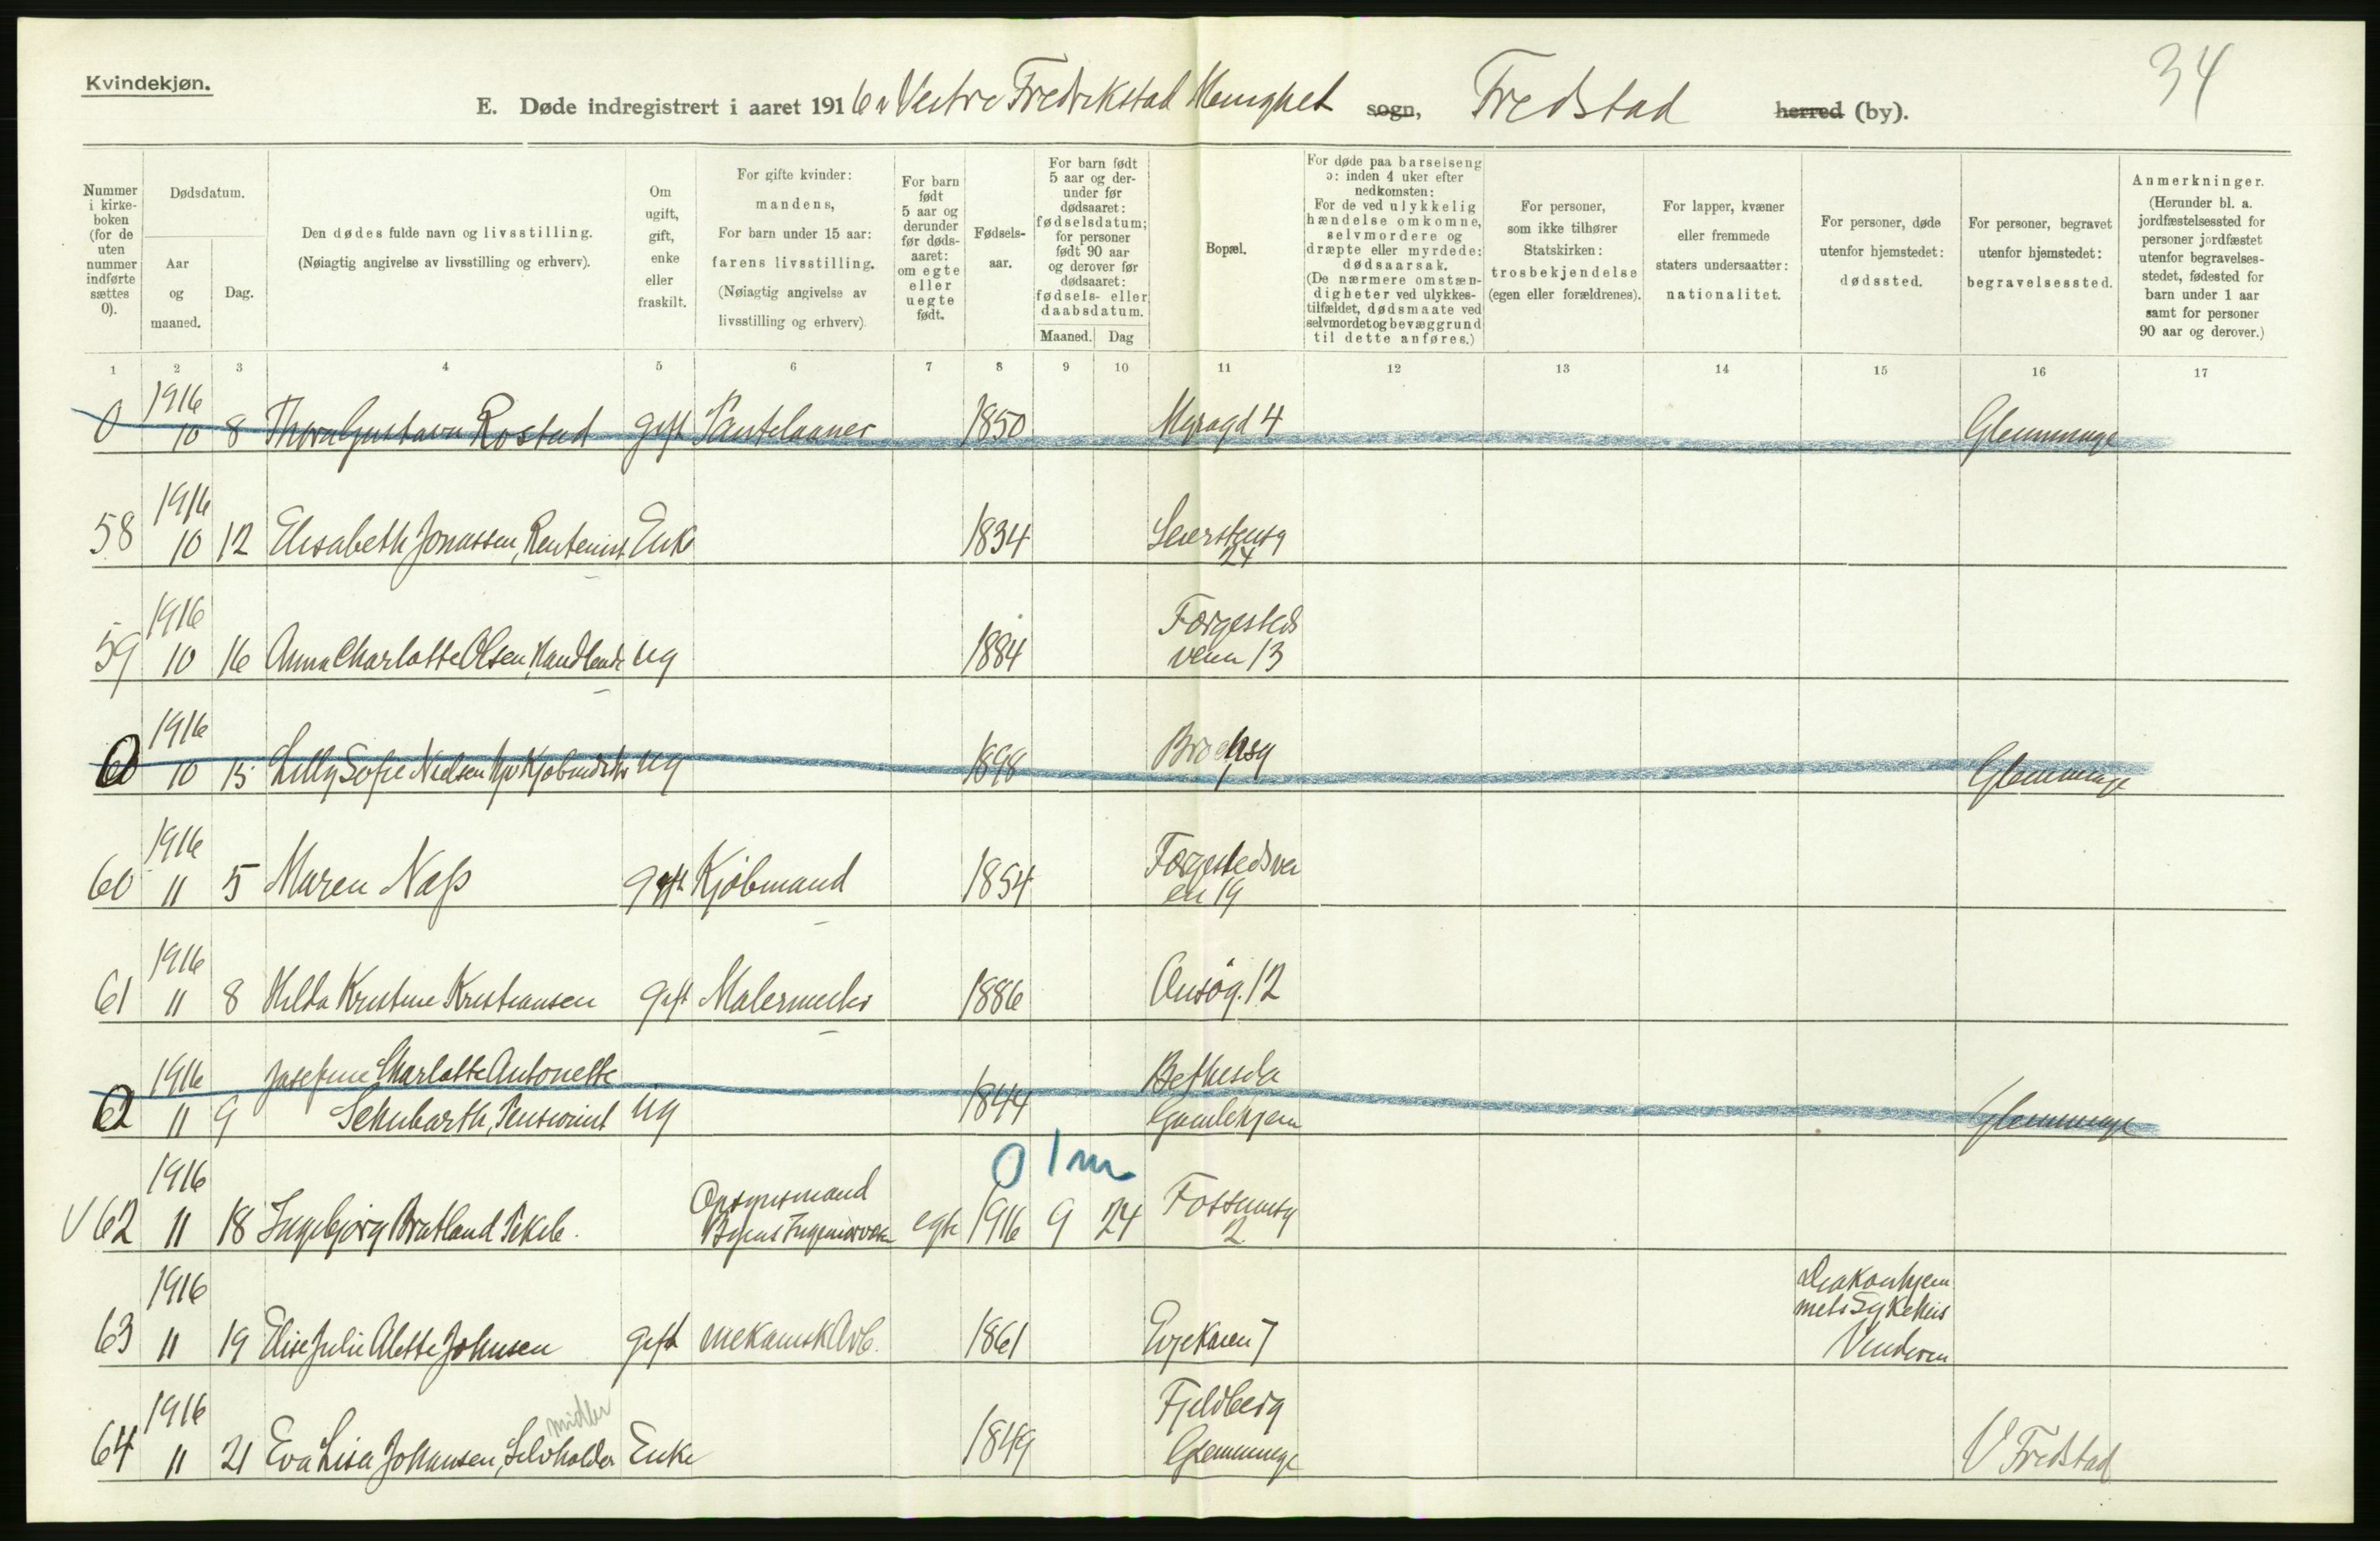 Kvindekjøn.
34
E. Døde indregistrert i aaret 1916 i Vestre Fredrikstad Menighet sogn, Fredstad herred (by).
Nummer i kirke-boken (for de uten nummer indførte sættes 0).
Dødsdatum.
Aar og maaned.
Dag.
Den dødes fulde navn og livsstilling.
(Nøiagtig angivelse av livsstilling og erhverv).
Om ugift, gift, enke eller fraskilt.
For gifte kvinder: mandens,
For barn under 15 aar: farens livsstilling.
(Nøiagtig angivelse av livsstilling og erhverv)
For barn født 5 aar og derunder før døds-aaret: om egte eller uegte født.
Fødsels-aar.
For barn født 5 aar og der-under før dødsaaret: fødselsdatum; for personer født 90 aar og derover før dødsaaret: fødsels- eller daabsdatum.
Maaned. Dag
Bopæl.
For døde paa barselseng ɔ: inden 4 uker efter nedkomsten:
For de ved ulykkelig hændelse omkomne, selvmordere og dræpte eller myrdede: dødsaarsak.
(De nærmere omstæn-digheter ved ulykkes-tilfældet, dødsmaate ved selvmordet og bevæggrund til dette anføres.)
For personer, som ikke tilhører Statskirken: trosbekjendelse (egen eller forældrenes).
For lapper, kvæner eller fremmede staters undersaatter: nationalitet.
For personer, døde utenfor hjemstedet: dødssted.
For personer, begravet utenfor hjemstedet: begravelsessted.
Anmerkninger.
(Herunder bl. a. jordfæstelsessted for personer jordfæstet utenfor begravelses-stedet, fødested for barn under 1 aar samt for personer 90 aar og derover.)
1 2 3 4 5 6 7 8 9 10 11 12 13 14 15 16 17
0 1916 10 8 Thora Gustava Rostad gift Pantelaaner 1850 Myragd 4 Glemminge
58 1916 10 12 Elisabeth Jonassen, Rentenist Enke 1834 Leerstensg 24
59 1916 10 16 Anna Charlotte Olsen, Handlende ug 1884 Færgesteds veien 13
0 1916 10 15 Lilly Sofie Nielsen ug 1898 Brochsg Glemminge
60 1916 11 5 Maren Næss gift Kjøbmand 1854 Færgestedsvei en 19
61 1916 11 8 Hilda Kristine Kristiansen gift Malermester 1886 12
0 1916 11 9 Josefine Charlotte Antonette
Schubarth, Pensionist ug 1844 Bethesda Gamlehjem Glemminge
0 1 m
V 62 1916 11 18 Ingebjørg Bratland Pikeb. Opsynsmand Byens Ingeniørvæsen egte 1916 9 24 Fossumsg 2
63 1916 11 19 Elise Julie Alette Johnsen gift mekanisk Arb. 1861 Evjekaien 7 Diakonhjem mets Sykehus Vinderen
midler
64 1916 11 21 Eva Lisa Johansen, Selvholder Enke 1849 Fjeldberg Glemminge V Fredstad